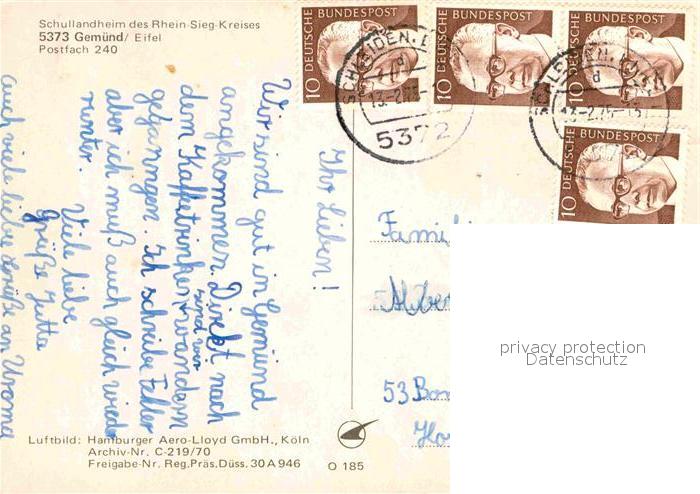 Schullandheim des Rhein-Sieg-Kreises
5373 Gemünd/ Eifel
Postfach 240
10 DEUTSCHE BUNDESPOST
10 DEUTSCHE BUNDESPOST
10 DEUTSCHE BUNDESPOST
10 DEUTSCHE BUNDESPOST
SCHLEIDEN, E
d
13.-2.75-
5372
d
13.-2.75-15
Ihr Lieben!
Wir sind gut in Gemünd
angekommen. Direkt nach
dem Kaffetrinken sind wir wandern
gegangen. Ich schreibe Fehler
aber ich muß auch gleich wieder
runter. Viele liebe
Grüße Jutta
auch viele liebe Grüße an Uroma
Famil
Alber
53 Bon
Luftbild: Hamburger Aero-Lloyd GmbH., Köln
Archiv-Nr. C-219/70
Freigabe-Nr. Reg.Präs.Düss. 30 A 946
O 185
privacy protection
Datenschutz